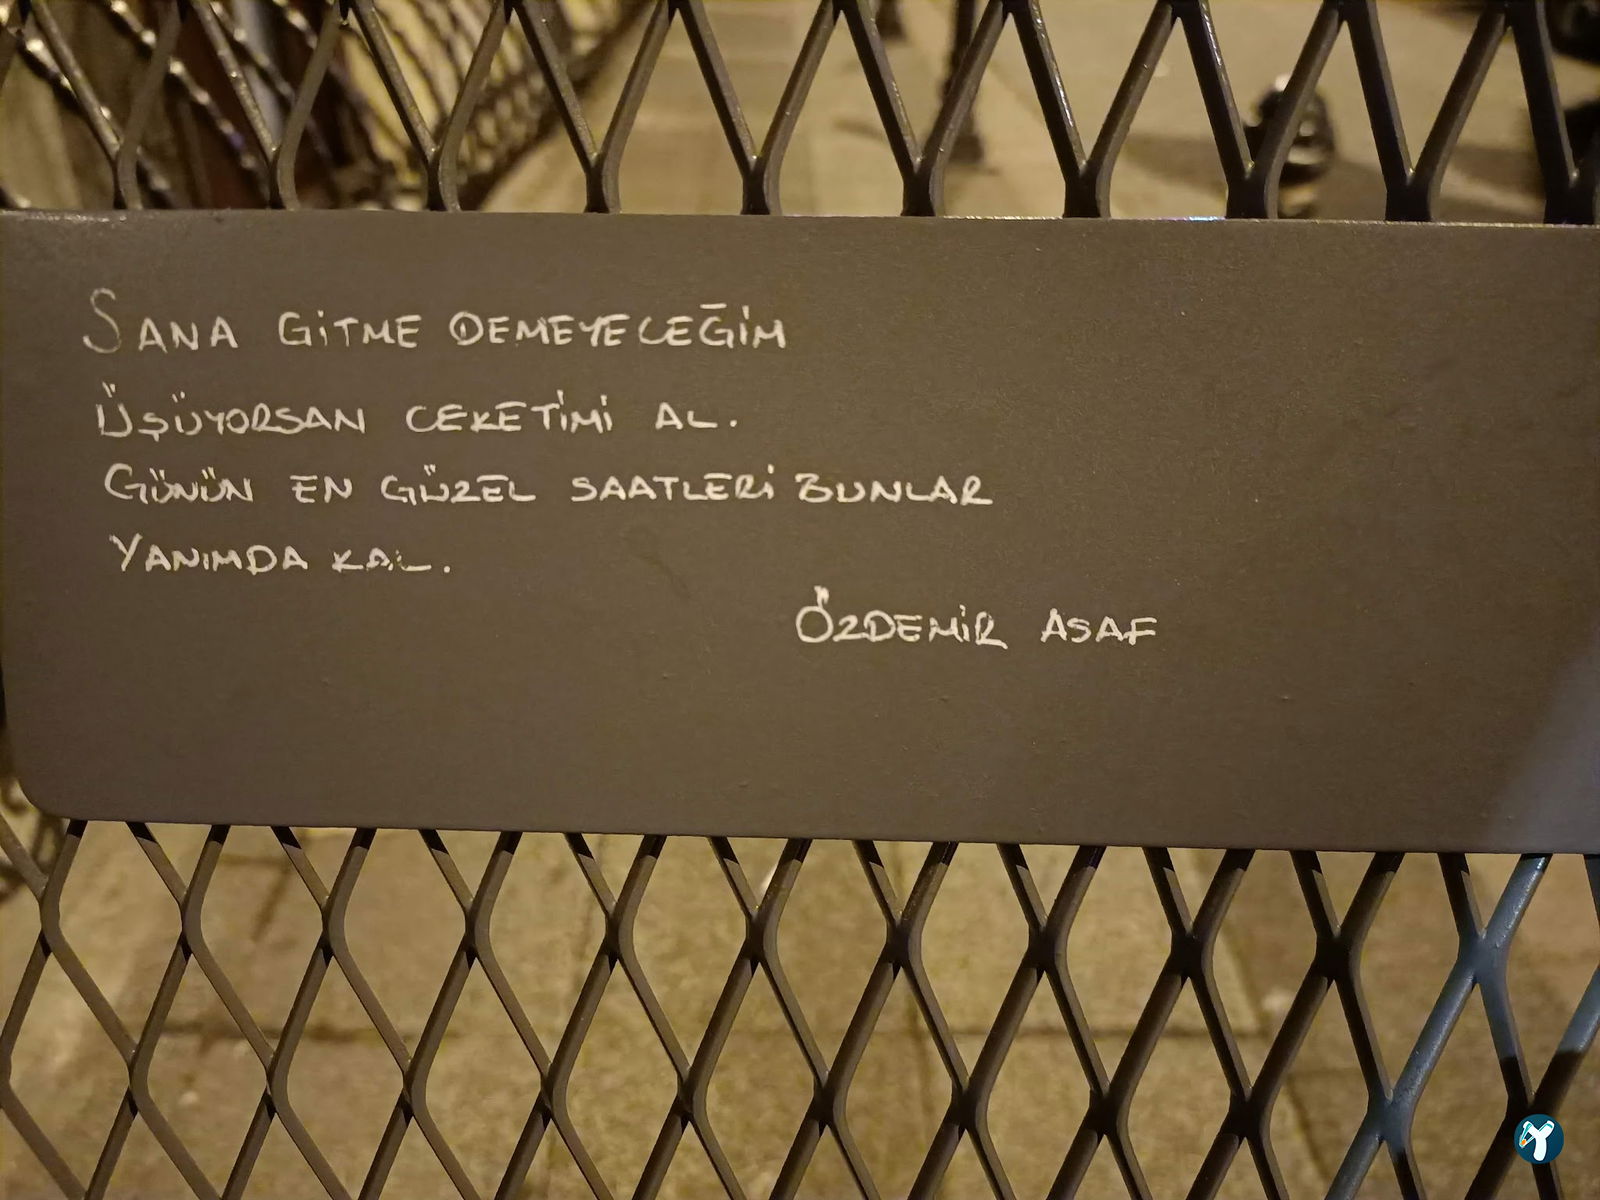 SANA GİTME DEMEYECEĞİM
ÜŞÜYORSAN CEKETİMİ AL.
GÜNÜN EN GÜZEL SAATLERİ BUNLAR
YANIMDA KAL.
ÖZDEMİR ASAF